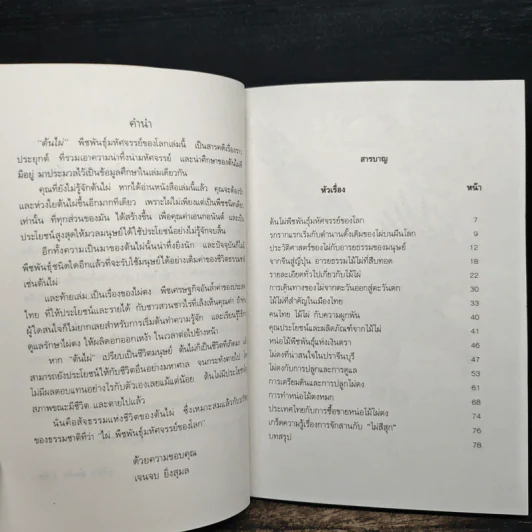 คำนำ
"ต้นไผ่" พืชพันธุ์มหัศจรรย์ของโลกเล่มนี้ เป็นสารคดีเรื่อง
ประยุกต์ ที่รวมเอาความน่าทึ่งน่ามหัศจรรย์ และน่าศึกษาของต้นไม้
มีอยู่ มาประมวลไว้เป็นข้อมูลศึกษาในเล่มเดียวกัน
คุณที่ยังไม่รู้จักต้นไผ่ หากได้อ่านหนังสือเล่มนี้แล้ว คุณจะต้อง
และห่วงใยต้นไผ่ขึ้นอีกมากทีเดียว เพราะไผ่ไม่เพียงแต่เป็นพืชชนิดเดียว
เท่านั้น ที่ทุกส่วนของมัน ได้สร้างขึ้น เพื่อคุณค่าเอนกอนันต์
ประโยชน์สูงสุดให้มวลมนุษย์ได้ใช้ประโยชน์อย่างไม่รู้จักจบสิ้น
อีกทั้งความเป็นมาของต้นไผ่นั้นน่าทึ่งยิ่งนัก และปัจจุบันก็ไม่
พืชพันธุ์ชนิดใดอีกแล้วที่จะรับใช้มนุษย์ได้อย่างเต็มค่าของชีวิต
เช่นต้นไผ่
และท้ายเล่ม..เป็นเรื่องของไผ่ตง พืชเศรษฐกิจอันล้ำค่าของ
ที่ให้ประโยชน์และรายได้ กับชาวสวนชาวไร่ที่เล็งเห็นคุณค่า
ผู้ใดสนใจก็ไม่ยากเลยสำหรับการเริ่มต้นทำความรู้จัก และเรียนรู้วิธี
ดูแลรักษาไผ่ตง ให้ผลิดอกออกเหง้า ในเวลาต่อไปข้างหน้า
หาก "ต้นไผ่" เปรียบเป็นชีวิตมนุษย์ ต้นไผ่ก็เป็นชีวิตหนึ่ง
สามารถยังประโยชน์ให้กับชีวิตอื่นอย่างมหาศาล จนกระทั่งตายไป
ไม่มีผลตอบแทนอย่างไรกับตัวเองเลยแม้แต่น้อย ต้นไผ่มีประโยชน์
สภาพขณะมีชีวิต และตายไปแล้ว
นั่นคือสัจธรรมแห่งชีวิตของต้นไผ่ ซึ่งเหมาะสมแล้วกับ
ของธรรมชาติที่ว่า "ไผ่..พืชพันธุ์มหัศจรรย์ของโลก"
ด้วยความขอบคุณ
เจนจบ ยิ่งสุมล
สารบาญ
หัวเรื่อง หน้า
ต้นไผ่พืชพันธุ์มหัศจรรย์ของโลก 7
รกรากแรกเริ่มกับตำนานดั้งเดิมของไผ่บนผืนโลก 9
ประวัติศาสตร์ของไผ่กับอารยธรรมของมนุษย์ 12
จากจีนสู่ญี่ปุ่น อารยธรรมไม้ไผ่ที่สืบทอด 18
รายละเอียดทั่วไปเกี่ยวกับไม้ไผ่ 22
การเดินทางของไผ่จากตะวันออกสู่ตะวันตก 30
ไม้ไผ่ที่สำคัญในเมืองไทย 34
คนไทย ไม้ไผ่ กับความผูกพัน 40
คุณประโยชน์และผลิตภัณฑ์จากไม้ไผ่ 41
หน่อไม้พืชพันธุ์แห่งเงินตรา 46
ไผ่ตงที่น่าสนใจในปราจีนบุรี 47
ไผ่ตงกับการปลูกและการดูแล 53
การเตรียมดินและการปลูกไผ่ตง 61
การทำหน่อไม้ตงหมก 68
ประเทศไทยกับการซื้อขายหน่อไม้ไผ่ตง 74
เกร็ดความรู้เรื่องการจักสานกับ "ไผ่สีสุก" 76
บทสรุป 78